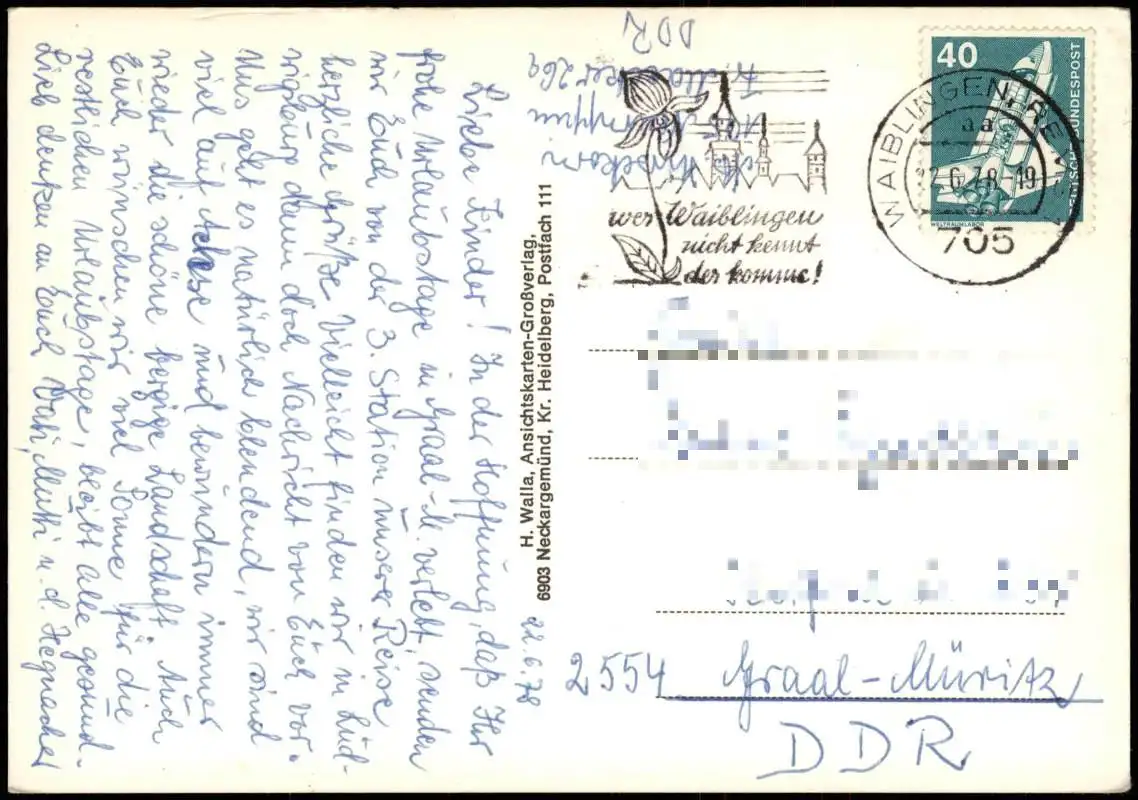 Liebe Kinder! In der Hoffnung, daß Ihr
frohe Urlaubstage in Graal-M. verlebt, senden
wir Euch von der 3. Station unserer Reise
herzliche Grüße. Vielleicht finden wir in Lüd-
wigsburg dann doch Nachricht von Euch vor.
Uns geht es natürlich blendend, wir sind
viel auf Achse und bewundern immer
wieder die schöne bergige Landschaft. Auch
Euch wünschen wir viel Sonne für die
restlichen Urlaubstage, bleibt alle gesund.
Lieb denken an Euch Vati, Mutti u. d. Hegnacher
22.6.78
H. Walla, Ansichtskarten-Großverlag,
6903 Neckargemünd, Kr. Heidelberg, Postfach 111
26a
DDR
wer Waiblingen
nicht kennt
der komme!
WAIBLINGEN
aa
22.6.78 19
705
40
DEUTSCHE BUNDESPOST
WELTRAUMLABOR
2554 Graal-Müritz
DDR